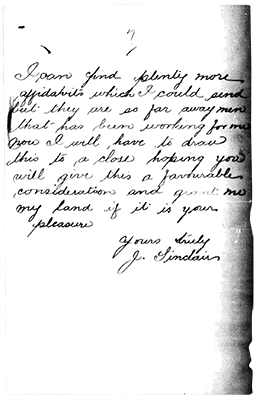 7
I can find plenty more
affidavits which I could send
but they are so far away men
that has been working for me
you I will have to draw
this to a close hoping you
will give this a favourable
consideration and grant me
my land if it is your
pleasure
Yours truly
J. Sinclair